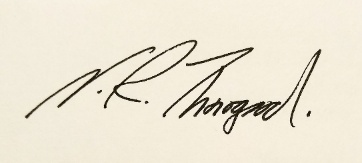 N. R. Thorogood.